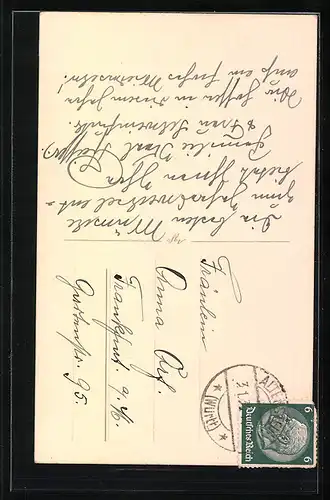 Die besten Wünsche
zum Jahreswechsel ent-
bietet Ihnen Ihre
Familie Karl
& Frau
Wir hoffen in diesem Jahre
auf ein frohes Wiedersehn!
Fräulein
Anna
Frankfurt a. M.
Gartenstr. 95.
(WÜRTT)
31.
6 Deutsches Reich 6